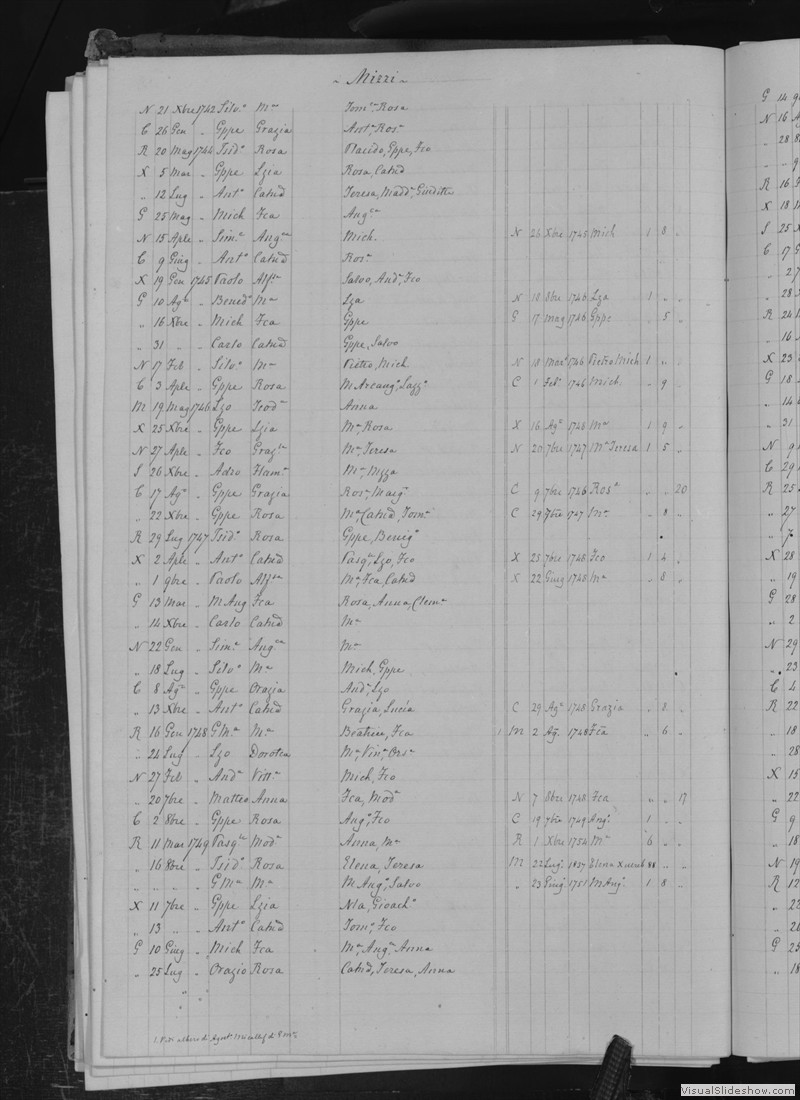 ~ Mizzi ~
N 21 Xbre 1742 Silo.o M.a Tom.o Rosa
C 26 Gen „ Gppe Grazia Ant.a, Ros.a
R 20 Mag 1744 Isid.o Rosa Placido, Gppe, Fco
X 5 Mar „ Gppe Lzia Rosa, Catnd
„ 12 Lug „ Ant.o Catnd Teresa, Madd.a Giuditta
G 25 Mag „ Mich Fca Ang.ca
N 15 Aple „ Sim.e Ang.ca Mich. N 26 Xbre 1745 Mich 1 8 „
C 9 Giug „ Ant.o Catnd Ros.a
X 19 Gen 1745 Paolo Alf.sa Salvo, And.a, Fco
G 10 Ag.o „ Bened.o M.a Lza N 18 8bre 1746 Lza 1 „ „
„ 16 Xbre „ Mich Fca Gppe G 17 Mag 1746 Gppe „ 5 „
„ 31 „ „ Carlo Catnd Gppe, Salvo
N 17 Feb „ Silo.o M.a Pietro, Mich N 18 Mar.o 1746 Pietro Mich 1 „ „
C 3 Aple „ Gppe Rosa M Arcang.o, Lazz.o C 1 Feb.o 1746 Mich. „ 9 „
M 19 Mag 1746 Lzo Teod.a Anna
X 25 Xbre „ Gppe Lzia M.a Rosa X 16 Ag.o 1748 M.a 1 9 „
N 27 Aple „ Fco Graz.la M.a, Teresa N 20 7bre 1747 M.a Teresa 1 5 „
S 26 Xbre „ Adeo Flam.a M.a, Nizza
C 17 Ag.o „ Gppe Grazia Ros.a, Marg.a C 9 7bre 1746 Ros.a „ „ 20
„ 22 Xbre „ Gppe Rosa M.a, Catnd, Tom.a C 29 7bre 1747 M.a „ 8 „
R 29 Lug 1747 Isid.o Rosa Gppe, Benig.o
X 2 Aple „ Ant.o Catnd Pasq.e, Lzo, Fco X 25 7bre 1748 Fco 1 4 „
„ 1 9bre „ Paolo Alf.sa M.a, Fca, Catnd X 22 Giug 1748 M.a „ 8 „
G 13 Mar „ M Ang Fca Rosa, Anna, Clem.a
„ 14 Xbre „ Carlo Catnd M.a
N 22 Gen „ Sim.e Ang.ca M.a
„ 18 Lug „ Silo.o M.a Mich, Gppe
C 8 Ag.o „ Gppe Orazia And.a, Lzo
„ 13 Xbre „ Ant.o Catnd Grazia, Lucia C 29 Ag.o 1748 Grazia „ 8 „
R 16 Gen 1748 G M.a M.a Beatrice, Fca 1 M 2 Ag. 1748 Fca „ 6 „
„ 24 Lug „ Lzo Dorotea M.a, Vin.a, Ors.a
N 27 Feb „ And.a Vitt.a Mich, Fco
„ 20 7bre „ Matteo Anna Fca, Mod.a N 7 8bre 1748 Fca „ „ 17
C 2 8bre „ Gppe Rosa Ang.o, Fco C 19 7bre 1749 Ang.o 1 „ „
R 11 Mar 1749 Pasq.le Mod.a Anna, M.a R 1 Xbre 1754 M.a 6 „ „
„ 16 8bre „ Isid.o Rosa Elena, Teresa M 22 Lug. 1837 Elena Xuereb 88 „ „
„ „ „ „ G M.a M.a M Ang.o, Salvo „ 23 Giug 1751 M Ang.o 1 8 „
X 11 7bre „ Gppe Lzia Nla, Gioach.o
„ 13 „ „ Ant.o Catnd Tom.o, Fco
G 10 Giug „ Mich Fca M.a, Ang.a, Anna
„ 25 Lug „ Orazio Rosa Catnd, Teresa, Anna
G 14
N 16
„ 28
„ 9
R 16
X 18
S 25
C 17
„ 27
„ 28
R 24
„ 16
X 23
G 18
„ 14
„ 31
N 9
C 29
R 25
„ 27
„ 7
X 28
„ 19
G 28
„ 2
N 29
„ 23
C 4
R 22
„ 18
„ 28
X 15
„ 22
G 9
„ 18
N 19
R 12
„ 22
„ 26
G 25
„ 18
VisualSlideshow.com